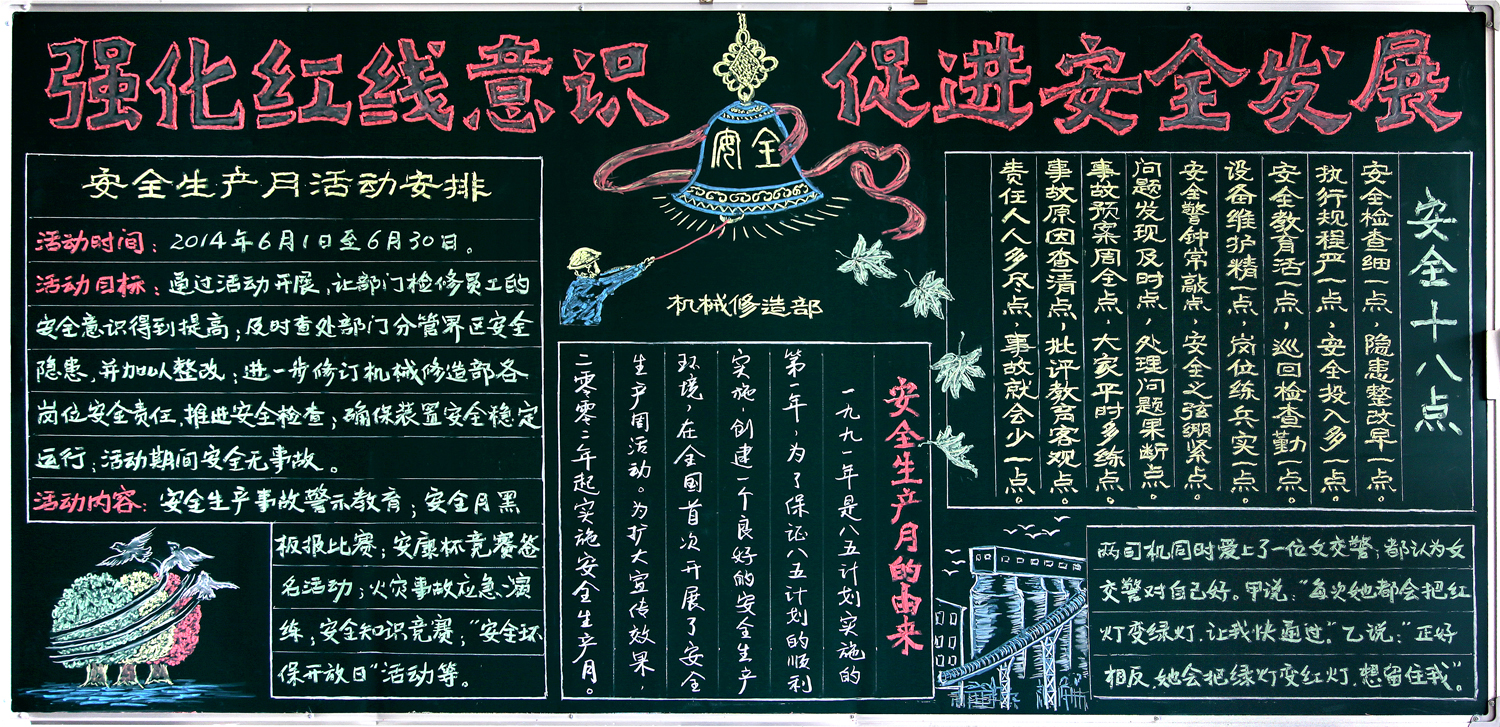 强化红线意识 促进安全发展
安全
机械修造部
安全生产月活动安排
活动时间：2014年6月1日至6月30日。
活动目标：通过活动开展，让部门检修员工的
安全意识得到提高；及时查处部门分管界区安全
隐患，并加以整改；进一步修订机械修造部各
岗位安全责任，推进安全检查；确保装置安全稳定
运行；活动期间安全无事故。
活动内容：安全生产事故警示教育；安全月黑
板报比赛；安康杯竞赛签
名活动；火灾事故应急演
练；安全知识竞赛；“安全环
保开放日”活动等。
安全生产月的由来
一九九一年是八五计划实施的
第一年，为了保证八五计划的顺利
实施，创建一个良好的安全生产
环境，在全国首次开展了安全
生产周活动。为扩大宣传效果，
二零零二年起实施安全生产月。
安全十八点
安全检查细一点，隐患整改早一点。
执行规程严一点，安全投入多一点。
安全教育活一点，巡回检查勤一点。
设备维护精一点，岗位练兵实一点。
安全警钟常敲点，安全之弦绷紧点。
问题发现及时点，处理问题果断点。
事故预案周全点，大家平时多练点。
事故原因查清点，批评教育客观点。
责任人人多尽点，事故就会少一点。
两司机同时爱上了一位女交警；都认为女
交警对自己好。甲说：“每次她都会把红
灯变绿灯，让我快通过。”乙说：“正好
相反，她会把绿灯变红灯，想留住我”。